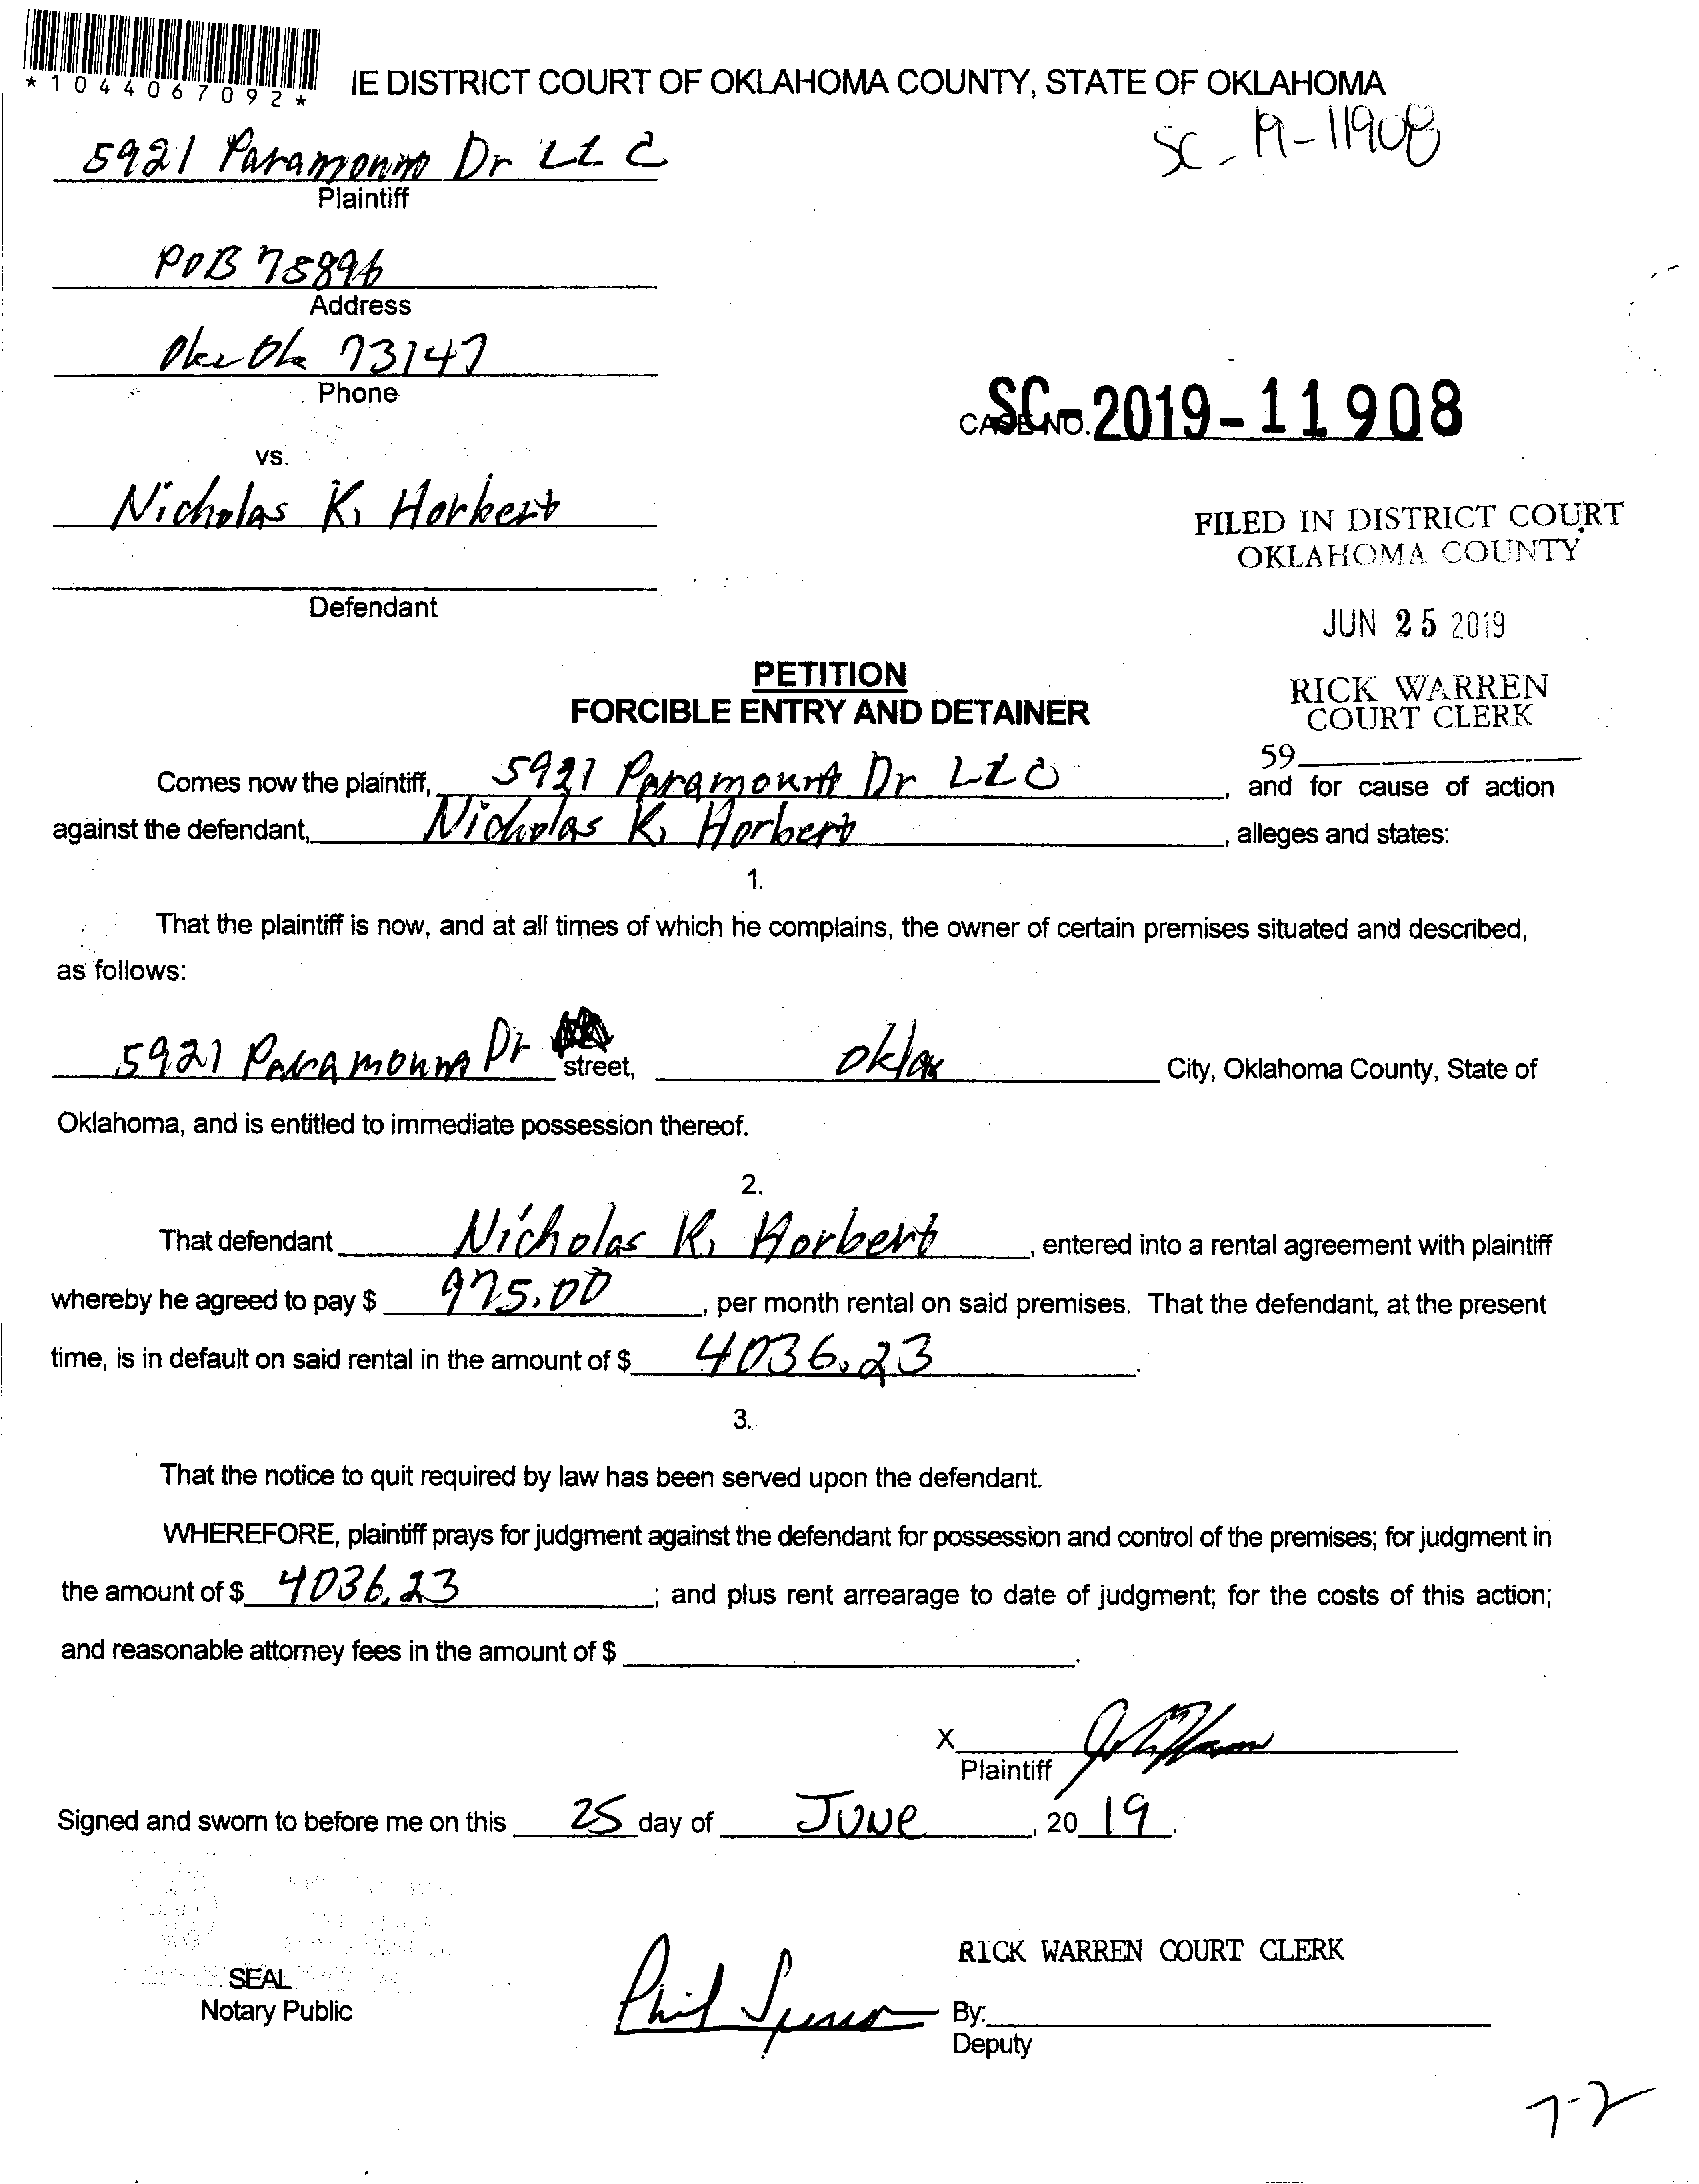 *1044067092*
IE DISTRICT COURT OF OKLAHOMA COUNTY, STATE OF OKLAHOMA
SC-19-11908
5921 Paramount Dr LLC
Plaintiff
POB 75896
Address
Okc Ok 73147
Phone
CASE NO. SC-2019-11908
vs.
Nicholas K. Horbert
FILED IN DISTRICT COURT
OKLAHOMA COUNTY
Defendant
JUN 25 2019
PETITION
RICK WARREN
FORCIBLE ENTRY AND DETAINER
COURT CLERK
59
Comes now the plaintiff, 5921 Paramount Dr LLC, and for cause of action
against the defendant, Nicholas K. Horbert, alleges and states:
1.
That the plaintiff is now, and at all times of which he complains, the owner of certain premises situated and described,
as follows:
5921 Paramount Dr street, Okla City, Oklahoma County, State of
Oklahoma, and is entitled to immediate possession thereof.
2.
That defendant Nicholas K. Horbert, entered into a rental agreement with plaintiff
whereby he agreed to pay $ 975.00, per month rental on said premises. That the defendant, at the present
time, is in default on said rental in the amount of $ 4036.23.
3.
That the notice to quit required by law has been served upon the defendant.
WHEREFORE, plaintiff prays for judgment against the defendant for possession and control of the premises; for judgment in
the amount of $ 4036.23; and plus rent arrearage to date of judgment; for the costs of this action;
and reasonable attorney fees in the amount of $ .
X
Plaintiff
Signed and sworn to before me on this 25 day of June, 2019.
RICK WARREN COURT CLERK
SEAL
Notary Public
Phil
By:
Deputy
7-2